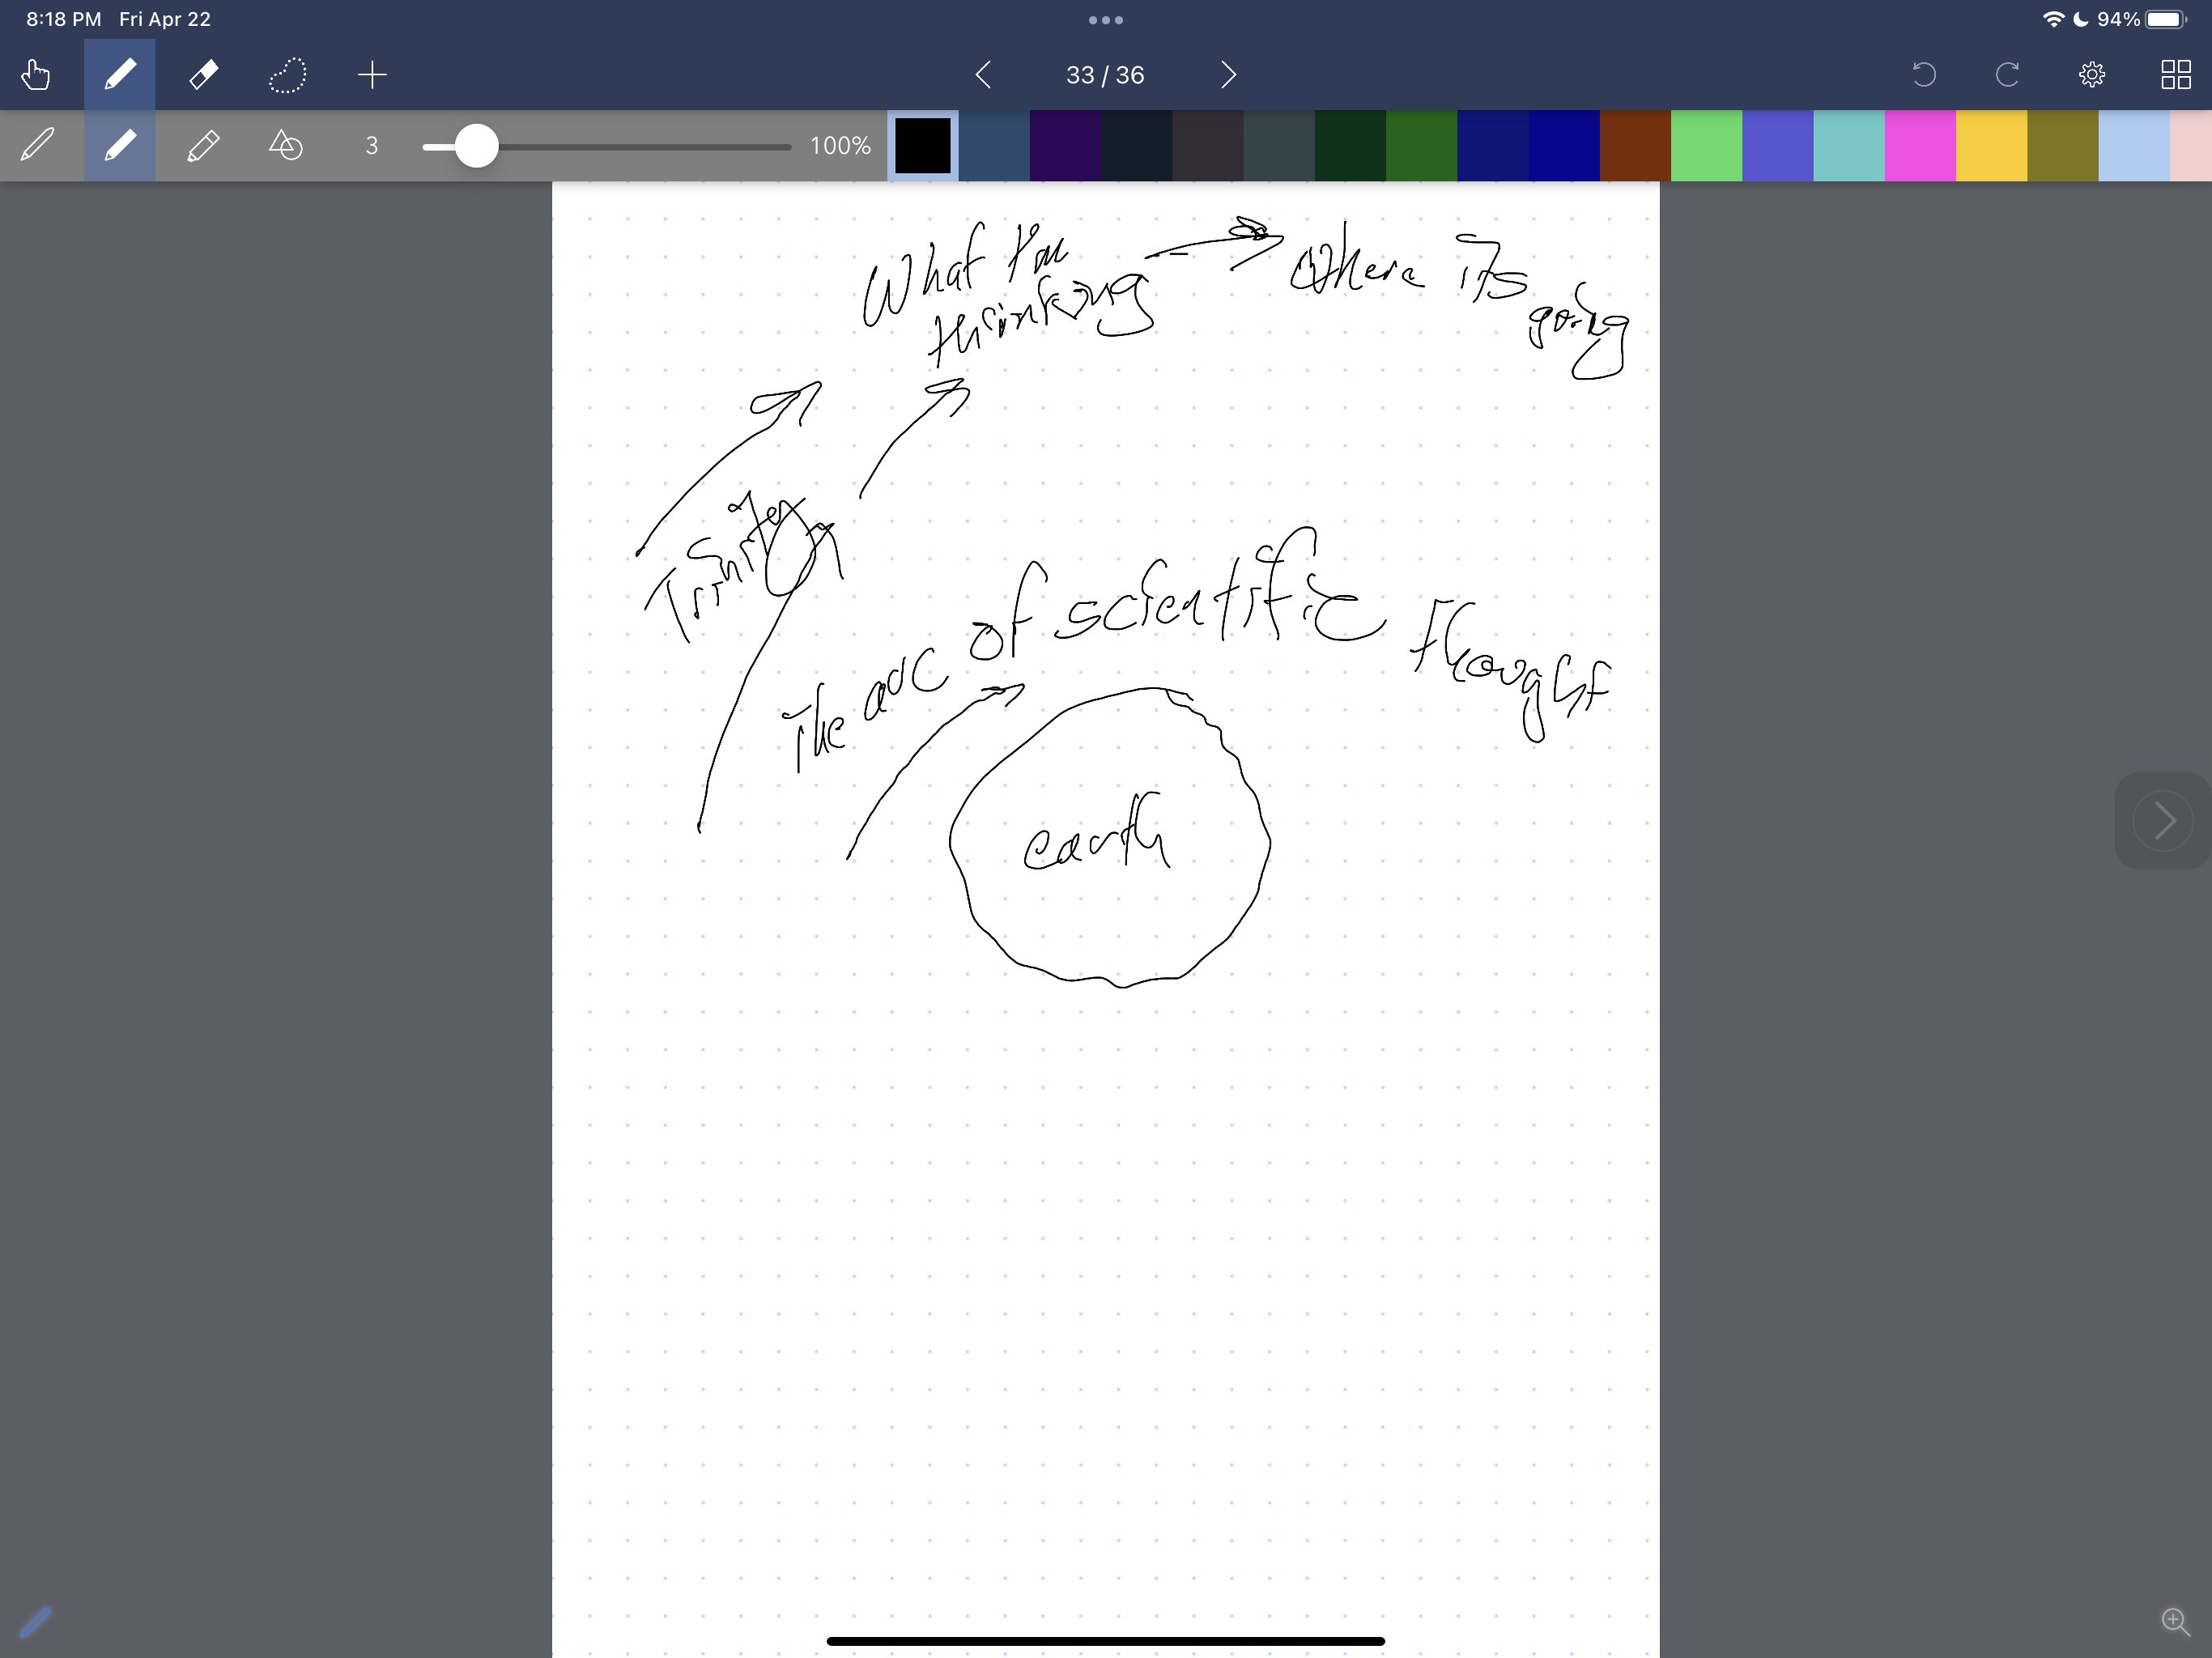 8:18 PM Fri Apr 22
94%
33 / 36
3
100%
What I'm
thinking
Where it's
going
Trinity
The arc of scientific thought
earth